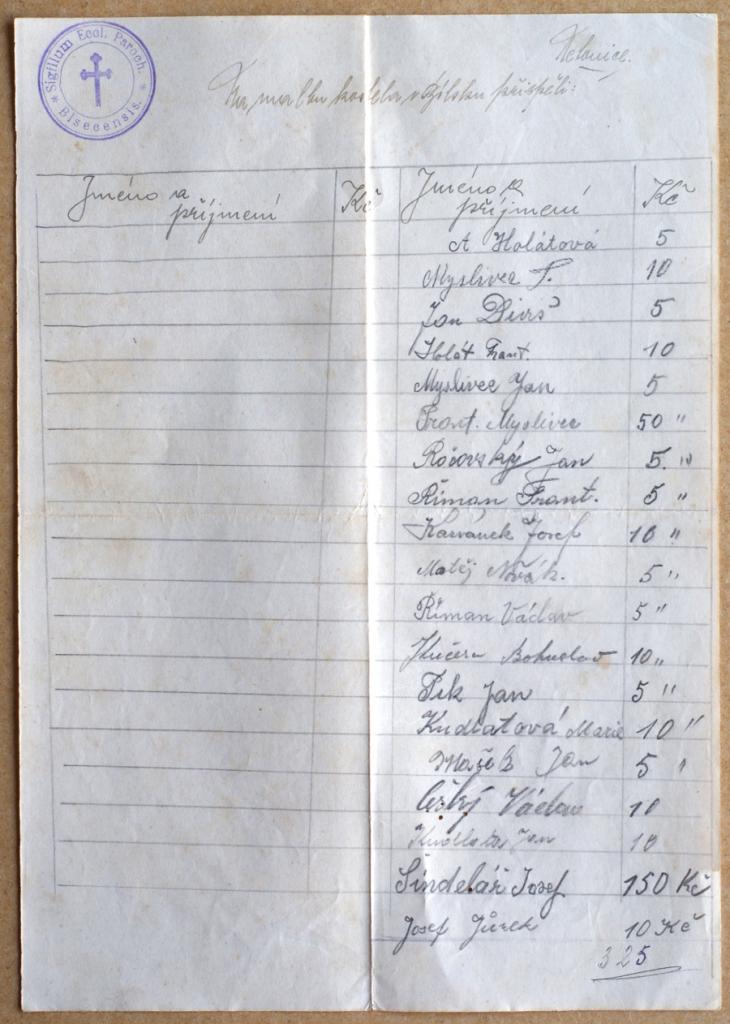 Sigillum Eccl. Paroch.
* Bisecensis. *
Na malbu kostela v přispěli:
Jméno a Kč Jméno a Kč
příjmení příjmení
A Holátová 5
Myslivec F. 10
Jan Diviš 5
Holát Frant. 10
Myslivec Jan 5
Frant. Myslivec 50 "
Jan 5. "
Říman Frant. 5 "
Karvánek Josef 10 "
Matěj Novák. 5 "
Říman Václav 5 "
Kučera Bohuslav 10 "
Jan 5 "
Kudlatová Marie 10 "
Mašek Jan 5 "
Český Václav 10
Kudlata Jan 10
Šindelář Josef 150 Kč
Josef Jůzek 10 Kč
325